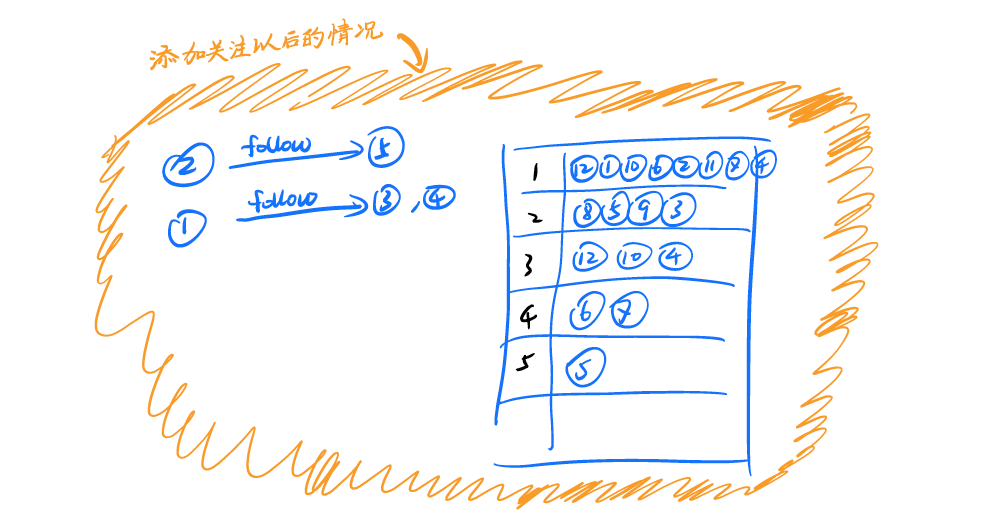 添加关注以后的情况
② follow ⑤
① follow ③,④
1 ⑫①⑩⑥②⑪⑦④
2 ⑧⑤⑨③
3 ⑫⑩④
4 ⑥⑦
5 ⑤